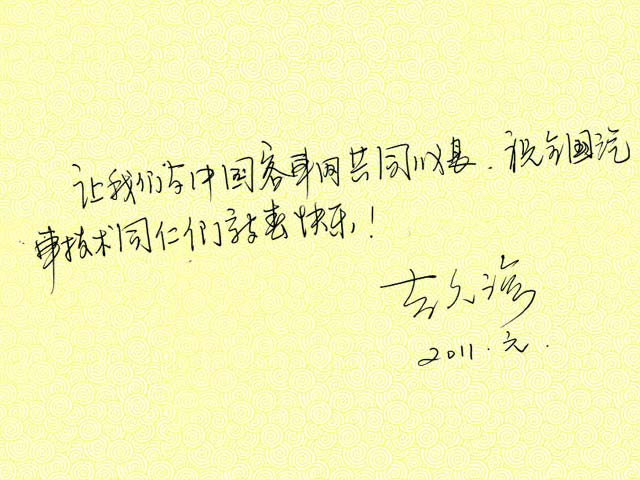 让我们与中国客车网共同收获.祝全国汽
车技术同仁们新春快乐!
2011.元.